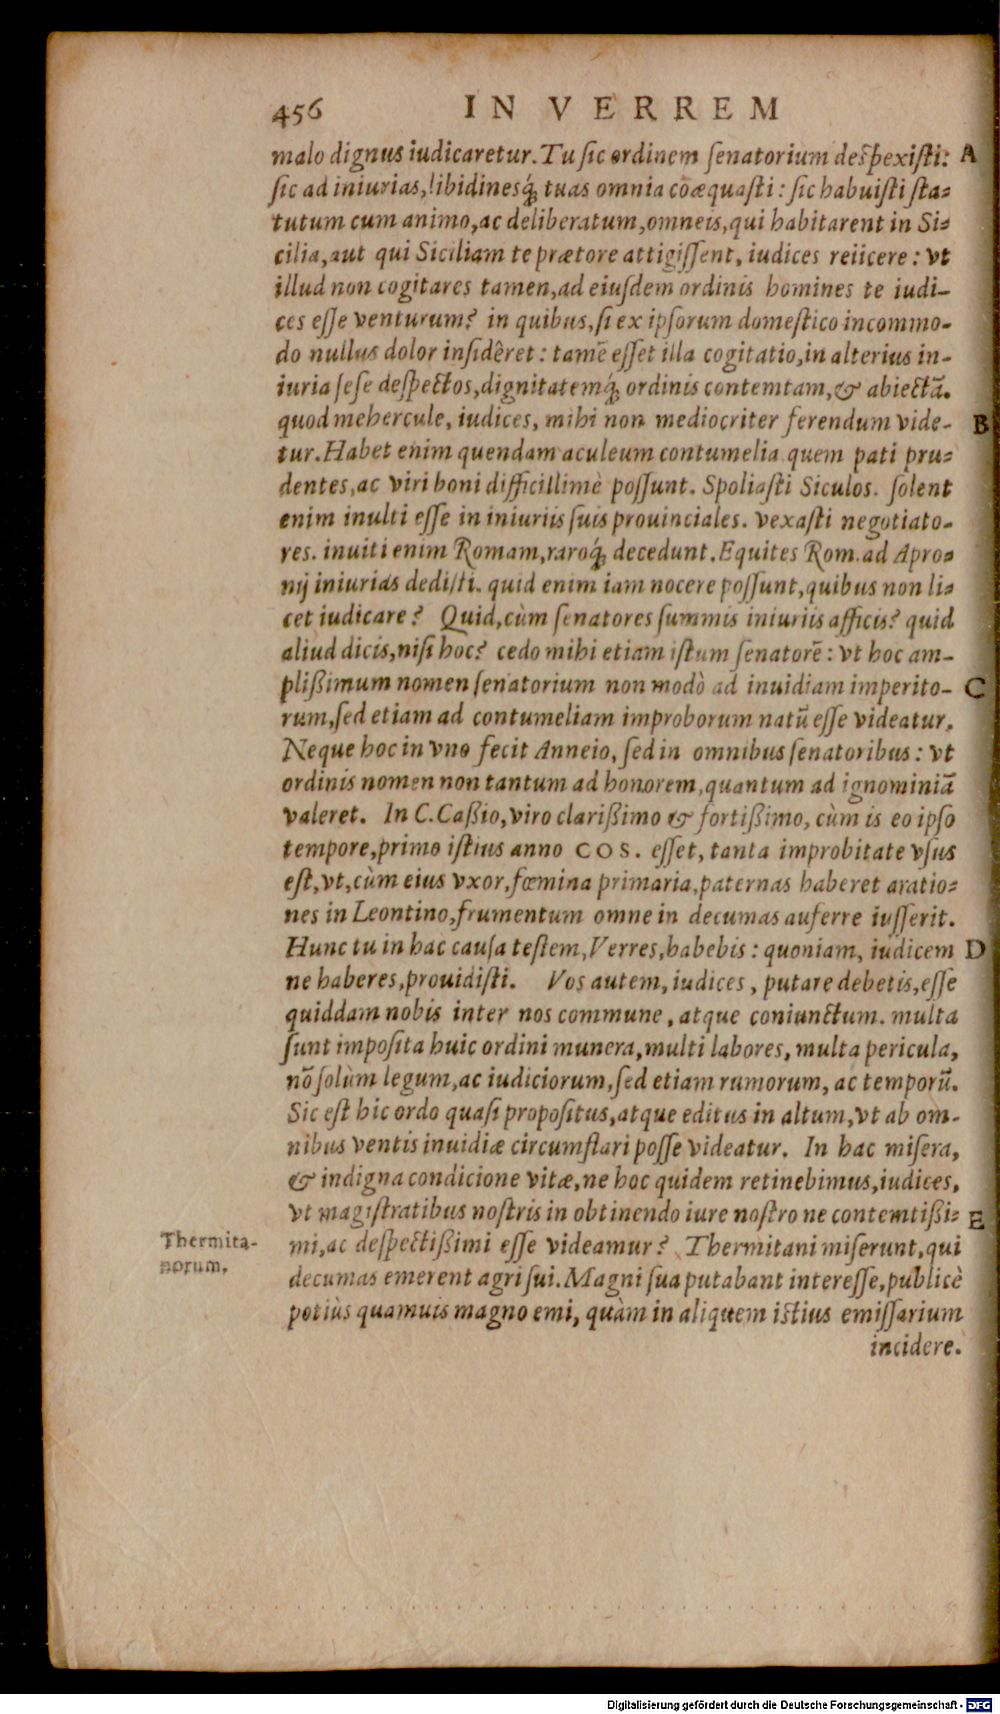 456 IN VERREM
malo dignus iudicaretur. Tu sic ordinem senatorium despexisti: A
sic ad iniurias, libidinesq́; tuas omnia coæquasti: sic habuisti sta-
tutum cum animo, ac deliberatum, omneis, qui habitarent in Si-
cilia, aut qui Siciliam te prætore attigissent, iudices reiicere: vt
illud non cogitares tamen, ad eiusdem ordinis homines te iudi-
ces esse venturum? in quibus, si ex ipsorum domestico incommo-
do nullus dolor insidêret: tamē esset illa cogitatio, in alterius in-
iuria sese despectos, dignitatemq́; ordinis contemtam, & abiectā.
quod mehercule, iudices, mihi non mediocriter ferendum vide- B
tur. Habet enim quendam aculeum contumelia quem pati pru-
dentes, ac viri boni difficillimè possunt. Spoliasti Siculos. solent
enim inulti esse in iniuriis suis prouinciales. vexasti negotiato-
res. inuiti enim Romam, raroq́; decedunt. Equites Rom. ad Apro-
nij iniurias dedisti. quid enim iam nocere possunt, quibus non li-
cet iudicare? Quid, cùm senatores summis iniuriis afficis? quid
aliud dicis, nisi hoc? cedo mihi etiam istum senatorē: vt hoc am-
plißimum nomen senatorium non modò ad inuidiam imperito- C
rum, sed etiam ad contumeliam improborum natū esse videatur.
Neque hoc in vno fecit Anneio, sed in omnibus senatoribus: vt
ordinis nomen non tantum ad honorem, quantum ad ignominiā
valeret. In C. Caßio, viro clarißimo & fortißimo, cùm is eo ipso
tempore, primo istius anno COS. esset, tanta improbitate vsus
est, vt, cùm eius vxor, fœmina primaria, paternas haberet aratio-
nes in Leontino, frumentum omne in decumas auferre iusserit.
Hunc tu in hac causa testem, Verres, habebis: quoniam, iudicem D
ne haberes, prouidisti. Vos autem, iudices, putare debetis, esse
quiddam nobis inter nos commune, atque coniunctum. multa
sunt imposita huic ordini munera, multi labores, multa pericula,
nō solùm legum, ac iudiciorum, sed etiam rumorum, ac temporū.
Sic est hic ordo quasi propositus, atque editus in altum, vt ab om-
nibus ventis inuidiæ circumflari posse videatur. In hac misera,
& indigna condicione vitæ, ne hoc quidem retinebimus, iudices,
vt magistratibus nostris in obtinendo iure nostro ne contemtißi- E
Thermita- mi, ac despectißimi esse videamur? Thermitani miserunt, qui
norum. decumas emerent agri sui. Magni sua putabant interesse, publicè
potiùs quamuis magno emi, quàm in aliquem istius emissarium
incidere.
Digitalisierung gefördert durch die Deutsche Forschungsgemeinschaft - DFG